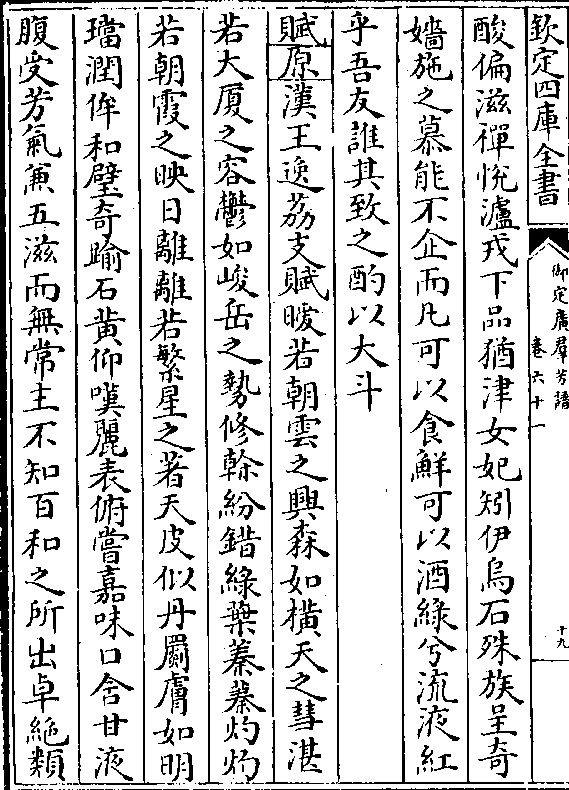 欽定四庫全書
御定廣羣芳譜
卷六十一
十九
酸偏滋禪悅瀘戎下品猶津女妃矧伊烏石殊族呈奇
嬙施之慕能不企而凡可以食鮮可以酒綠兮流液紅
乎吾友誰其致之酌以大斗
賦原漢王逸荔支賦曖若朝雲之興森如橫天之彗湛
若大厦之容鬱如峻岳之勢修榦紛錯綠葉蓁蓁灼灼
若朝霞之映日離離若繁星之著天皮似丹罽膚如明
璫潤侔和璧奇踰石黃仰嘆麗表俯嘗嘉味口含甘液
腹受芳氣兼五滋而無常主不知百和之所出卓絶類